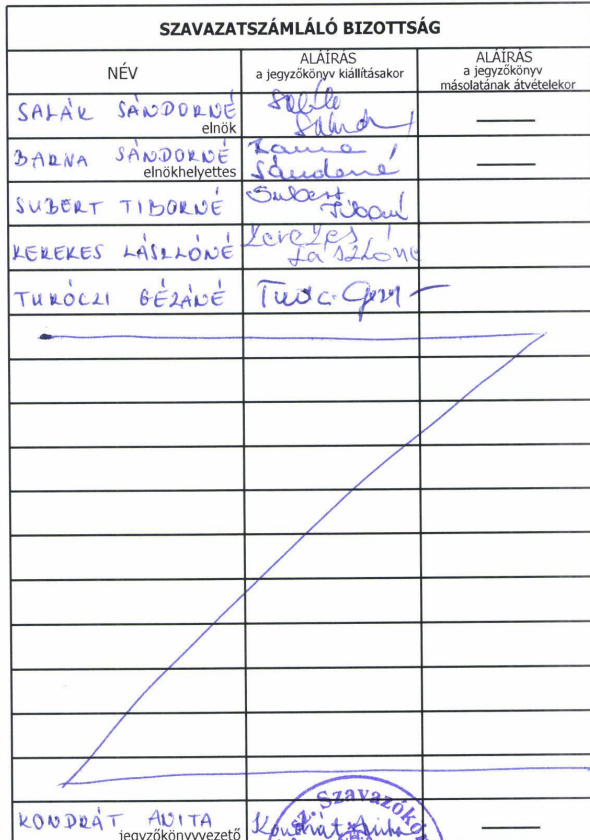 SZAVAZATSZÁMLÁLÓ BIZOTTSÁG
NÉV
ALÁÍRÁS
a jegyzőkönyv kiállításakor
ALÁÍRÁS
a jegyzőkönyv
másolatának átvételekor
SALÁK SÁNDORNÉ
elnök
BARNA SÁNDORNÉ
elnökhelyettes
Sándorné
SUBERT TIBORNÉ
Subert
Tiborné
KEREKES LÁSZLÓNÉ
Kerekes
Lászlóné
TURÓCZI GÉZÁNÉ
KONDRÁT ANITA
jegyzőkönyvvezető
Kondrát Anita
sz. Szavazókör